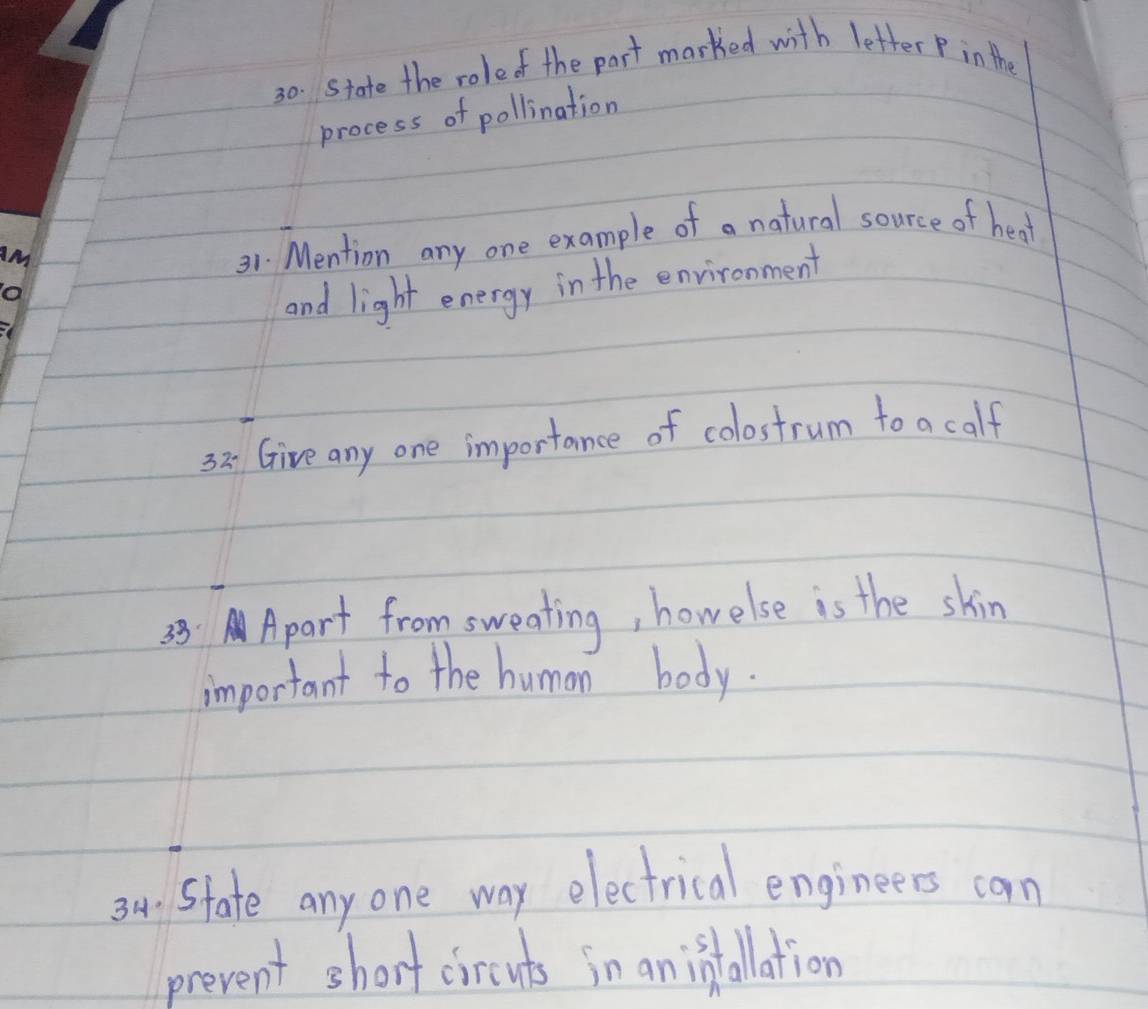 30. State the role of the part marked with letter P in the
process of pollination
31. Mention any one example of a natural source of heat
and light energy in the environment
32. Give any one importance of colostrum to a calf
33. Apart from sweating, how else is the skin
important to the human body.
34. State any one way electrical engineers can
prevent short circuts in an installation
AM